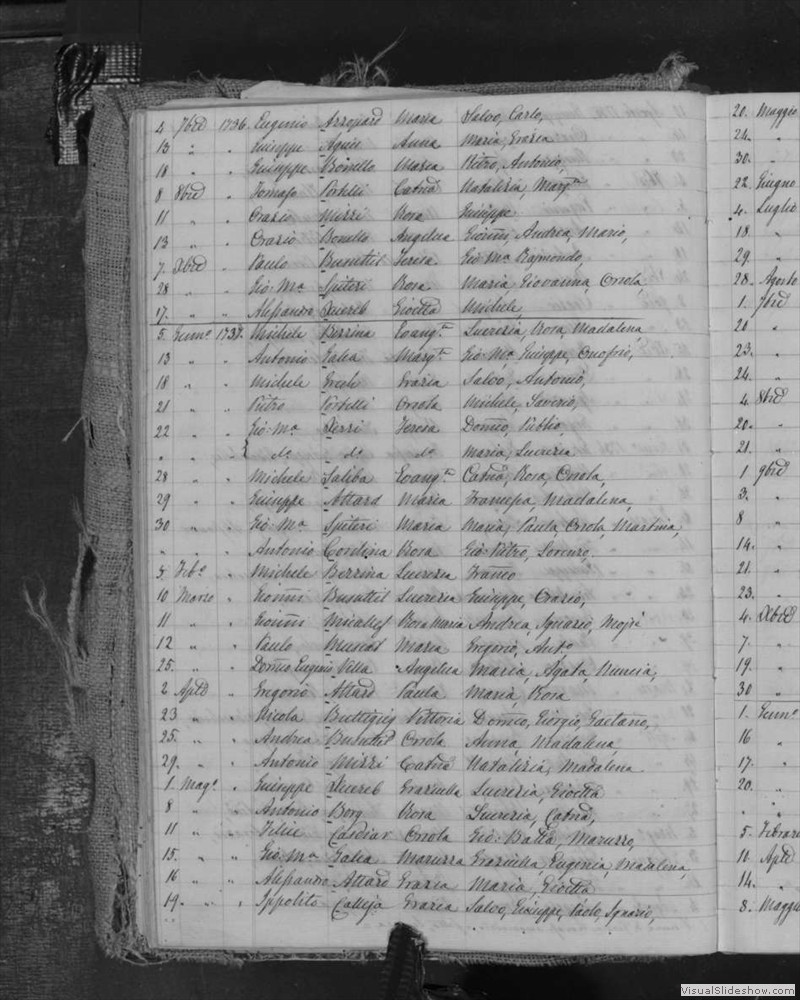 4 7bre 1736. Eugenio Azzopard Maria Salvo, Carlo,
13 " " Giuseppe Aquis Anna Maria, Grazia
18 " " Giuseppe Bonello Maria Pietro, Antonio,
8 8bre " Tomaso Portelli Catna Natalizia, Margta
11 " " Orazio Mizzi Rosa Giuseppe
13 " " Orazio Bonello Angelica Gionni, Andrea, Mario,
7. Xbre " Paulo Busuttil Teresa Gio: Ma Rajmondo,
28 " " Gio: Ma Spiteri Rosa Maria, Giovanna, Orsola,
17. " " Alessandro Xuereb Gioetta Michele,
5. Genno 1737. Michele Bezzina Evangta Lucrezia, Rosa, Madalena,
13 " " Antonio Galea Margta Gio: Ma, Giuseppe, Onofrio,
18 " " Michele Grech Grazia Salvo, Antonio,
21 " " Pietro Portelli Orsola Michele, Saverio,
22 " " Gio: Ma Zerri Teresa Domco, Publio,
" " " { do do do Maria, Lucrezia
28 " " Michele Saliba Evangta Catna, Rosa, Orsola,
29 " " Giuseppe Attard Maria Francesca, Madalena,
30 " " Gio: Ma Spiteri Maria Maria, Paula, Orsola, Martina,
" " " Antonio Cordina Rosa Gio: Pietro, Lorenzo,
5. Febo " Michele Bezzina Lucrezia Franco
10 Marzo " Gionni Busuttil Lucrezia Giuseppe, Orazio,
11 " " Gionni Micallef Rosa Maria Andrea, Ignazio,
12 " " Paulo Muscat Maria Gregorio, Anto
25. " " Domco Eugenio Villa Angelica Maria, Agata, Nunzia,
2 Aple " Gregorio Attard Paula Maria, Rosa
23 " " Nicola Buttigieg Vittoria Domco, Giorgio, Gaetano,
25. " " Andrea Busuttil Orsola Anna, Madalena,
29. " " Antonio Mizzi Catna Natalizia, Madalena
1. Mago " Giuseppe Xuereb Graziella Lucrezia, Gioetta
8 " " Antonio Borg Rosa Lucrezia, Catna,
11 " " Felice Casdiar Orsola Gio: Batta, Maruzzo,
15. " " Gio: Ma Galea Maruzza Graziella, Eugenia, Madalena
16 " " Alessandro Attard Grazia Maria, Gioetta
19. " " Ippolito Calleja Grazia Salvo, Giuseppe, Paolo, Ignazio,
20. Maggio
24. "
30. "
22 Giugno
4. Luglio
18. "
29. "
28. Agosto
1. 7bre
20 "
23. "
24. "
4. 8bre
20. "
21. "
1 9bre
3. "
8 "
14. "
21. "
23. "
4. Xbre
7. "
19. "
30 "
1. Genno
16 "
17. "
20. "
" "
5. Febraro
11. Aple
14. "
8. Maggio
VisualSlideshow.com